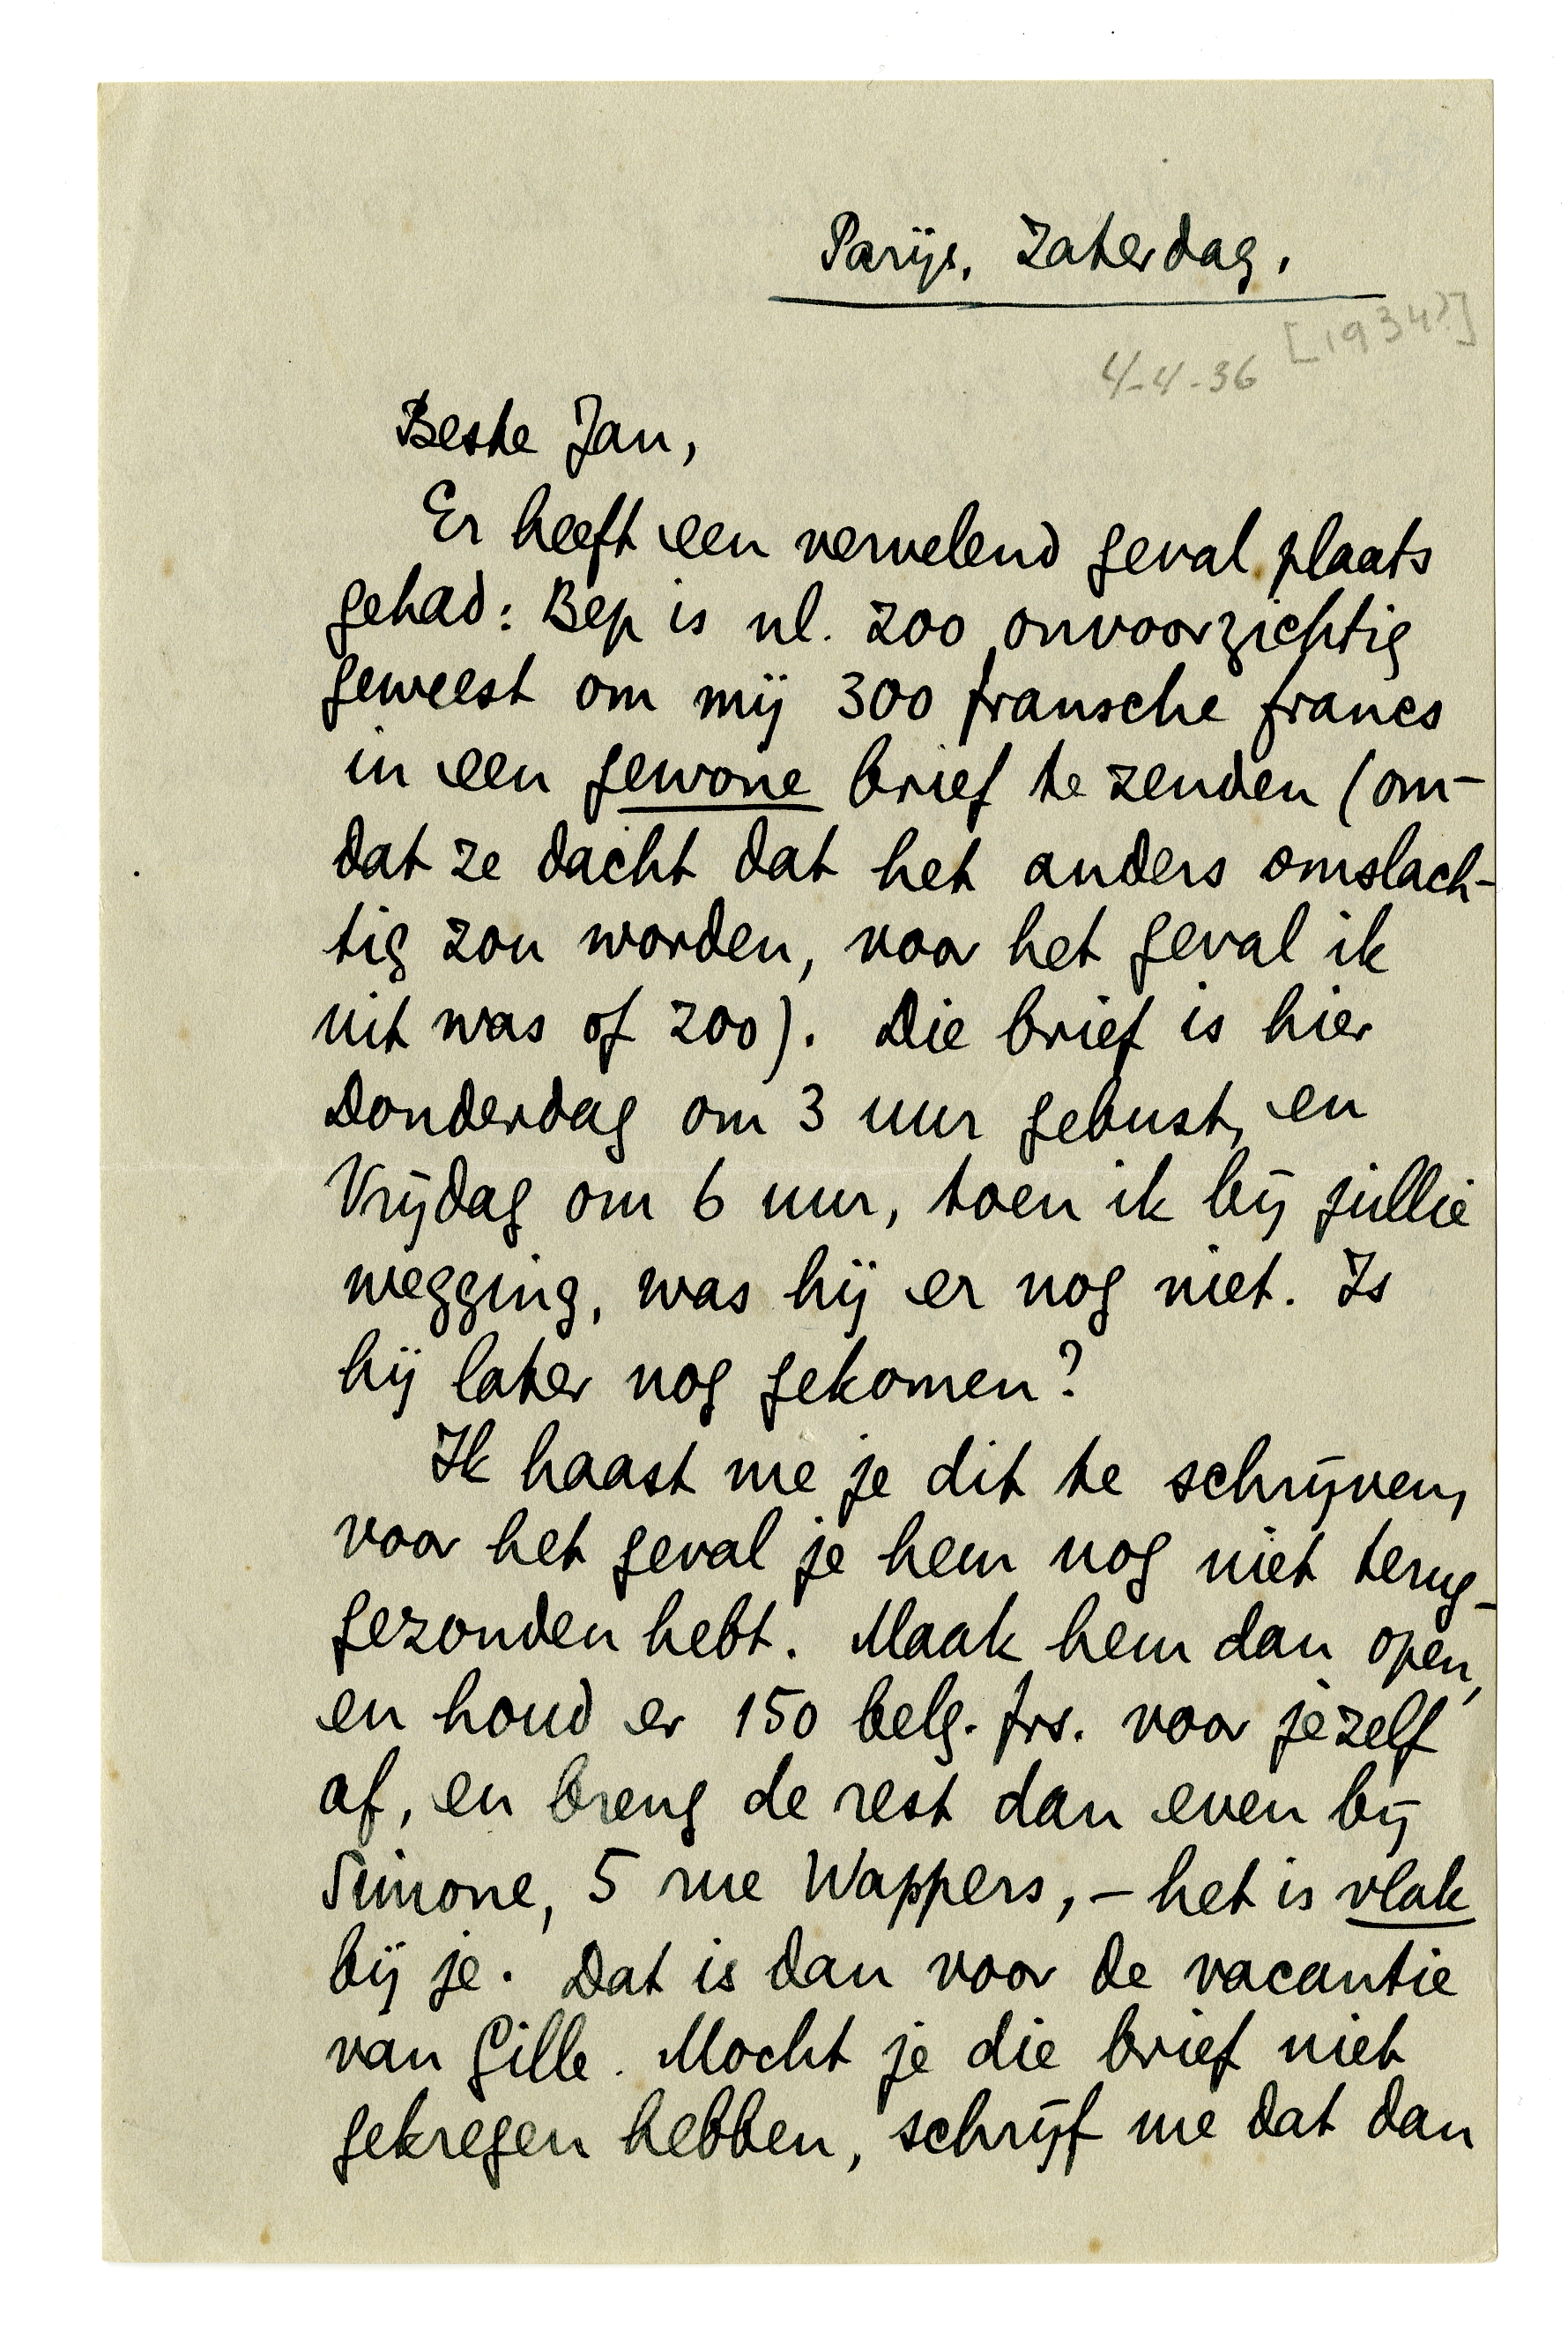 Parijs, Zaterdag,
[1934?]
4-4-36
Beste Jan,
Er heeft een vervelend geval plaats
gehad: Bep is nl. zoo onvoorzichtig
geweest om mij 300 fransche francs
in een gewone brief te zenden (om-
dat ze dacht dat het anders omslach-
tig zou worden, voor het geval ik
uit was of zoo). Die brief is hier
Donderdag om 3 uur gebust, en
Vrijdag om 6 uur, toen ik bij jullie
wegging, was hij er nog niet. Is
hij later nog gekomen?
Ik haast me je dit te schrijven,
voor het geval je hem nog niet terug-
gezonden hebt. Maak hem dan open,
en houd er 150 belg. frs. voor jezelf
af, en breng de rest dan even bij
Simone, 5 rue Wappers, – het is vlak
bij je. Dat is dan voor de vacantie
van Gille. Mocht je die brief niet
gekregen hebben, schrijf me dat dan